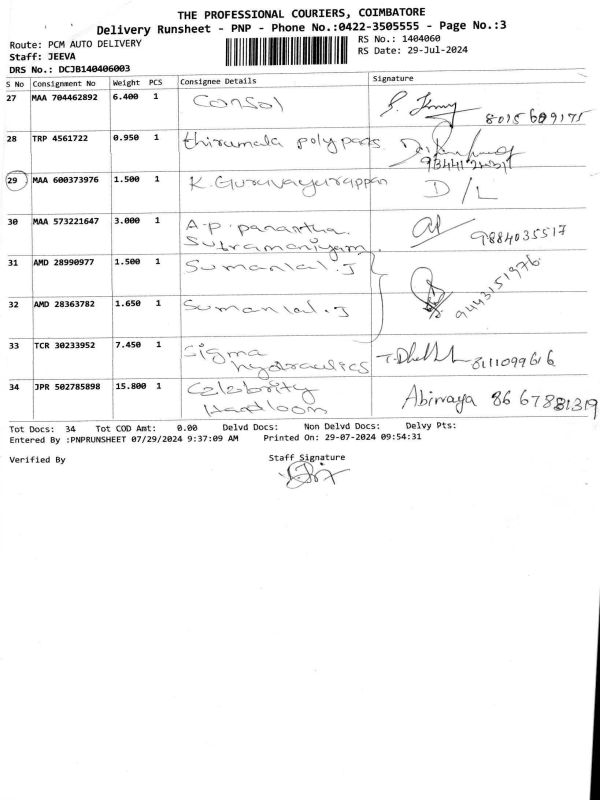 THE PROFESSIONAL COURIERS, COIMBATORE
Delivery Runsheet - PNP - Phone No.:0422-3505555 - Page No.:3
Route: PCM AUTO DELIVERY
Staff: JEEVA
DRS No.: DCJB140406003
RS No.: 1404060
RS Date: 29-Jul-2024
S No Consignment No Weight PCS Consignee Details Signature
27 MAA 704462892 6.400 1 Consol 8015609175
28 TRP 4561722 0.950 1 thirumala polypacks
29 MAA 600373976 1.500 1 K. Guruvayurappan D/L
30 MAA 573221647 3.000 1 A.P. 9884035517
Subramaniyam.
31 AMD 28990977 1.500 1 Sumanlal. J
9443151976
32 AMD 28363782 1.650 1 Sumanlal. J
33 TCR 30233952 7.450 1 Sigma
hydraulics 8111099616
34 JPR 502785898 15.800 1 Celebrity Abinaya
Handloom
Tot Docs: 34 Tot COD Amt: 0.00 Delvd Docs: Non Delvd Docs: Delvy Pts:
Entered By :PNPRUNSHEET 07/29/2024 9:37:09 AM Printed On: 29-07-2024 09:54:31
Verified By Staff Signature